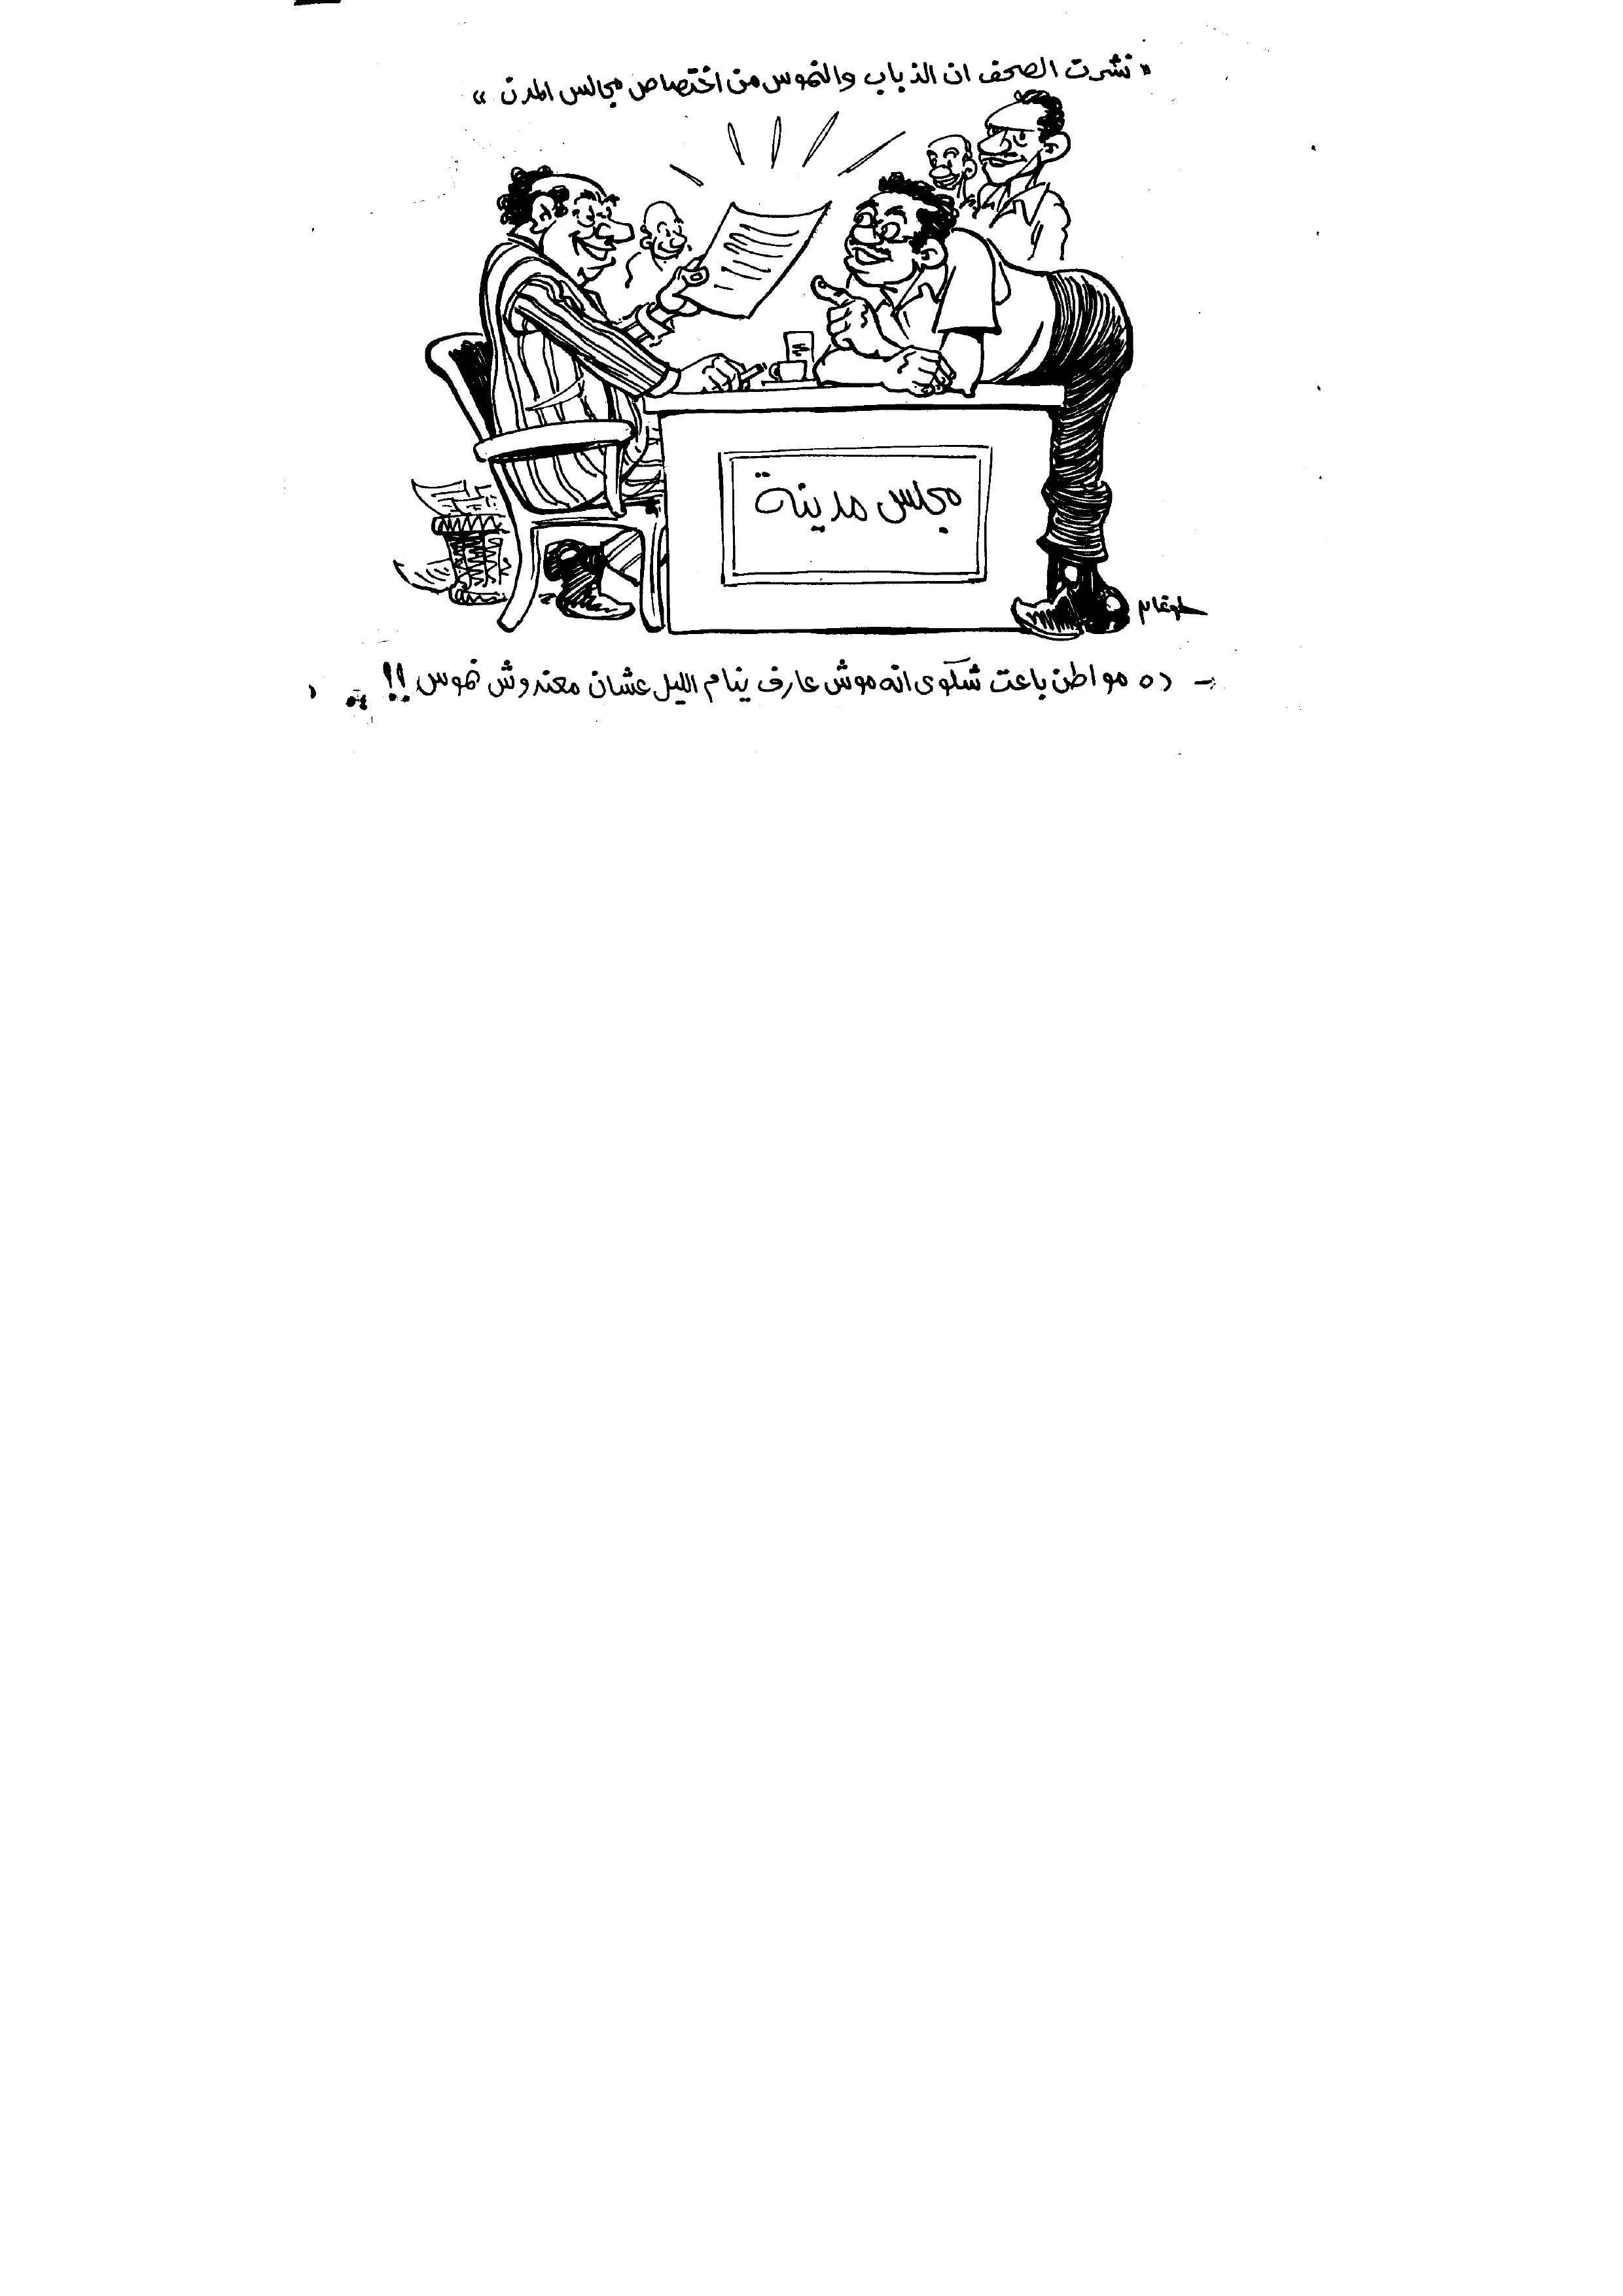 « نشرت الصحف ان الذباب والنموس من اختصاص مجالس المدن »
مجلس مدينة
طوغان
- ده مواطن باعت شكوى انه موش عارف ينام الليل عشان معندوش نموس !!